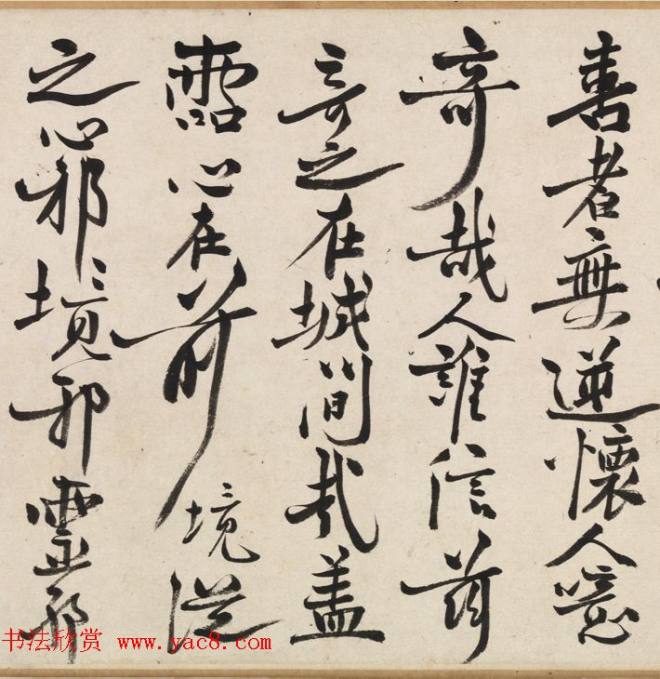 善者無逆懷人噫
奇哉人誰信苟
奇之在城間哉蓋
靈心在前境從
之心邪境邪靈邪
书法欣赏 www.yac8.com